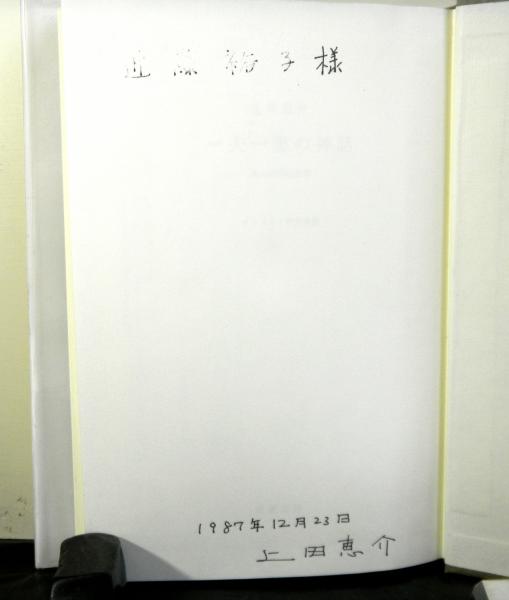 近藤裕子様
1987年12月23日
上田恵介